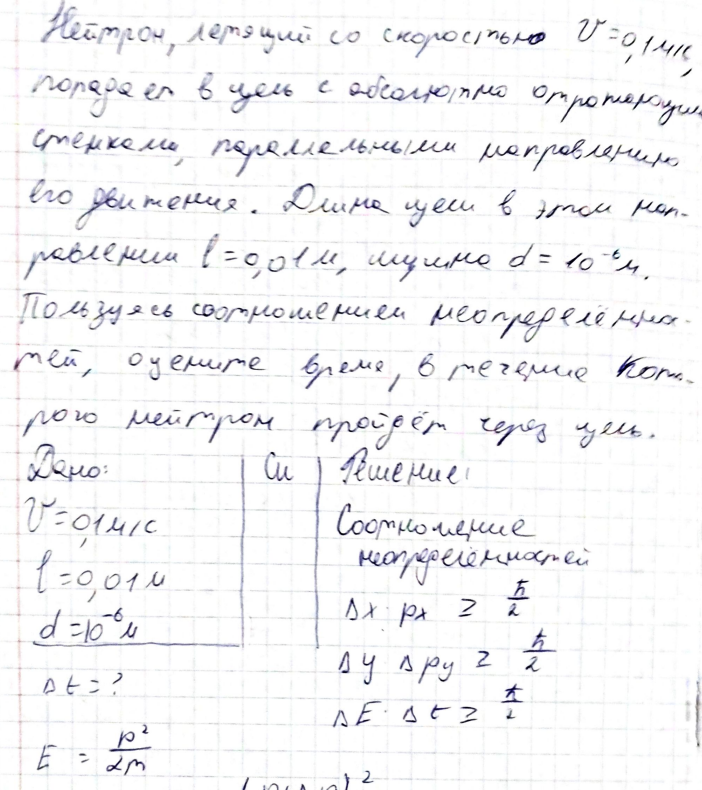 Нейтрон, летящий со скоростью V=0,1м/с,
попадает в щель с абсолютно отражающими
стенками, параллельными направлению
его движения. Длина щели в этом нап-
равлении l=0,01м, ширина d=10⁻⁶м.
Пользуясь соотношением неопределённос-
тей, оцените время, в течение кото-
рого нейтрон пройдёт через щель.
Дано: Си Решение:
V=0,1м/с Соотношение
неопределённостей
l=0,01м
Δx px ≥ ħ/2
d=10⁻⁶м
Δy Δpy ≥ ħ/2
Δt=?
ΔE·Δt≥ ħ/2
E = p²/2m